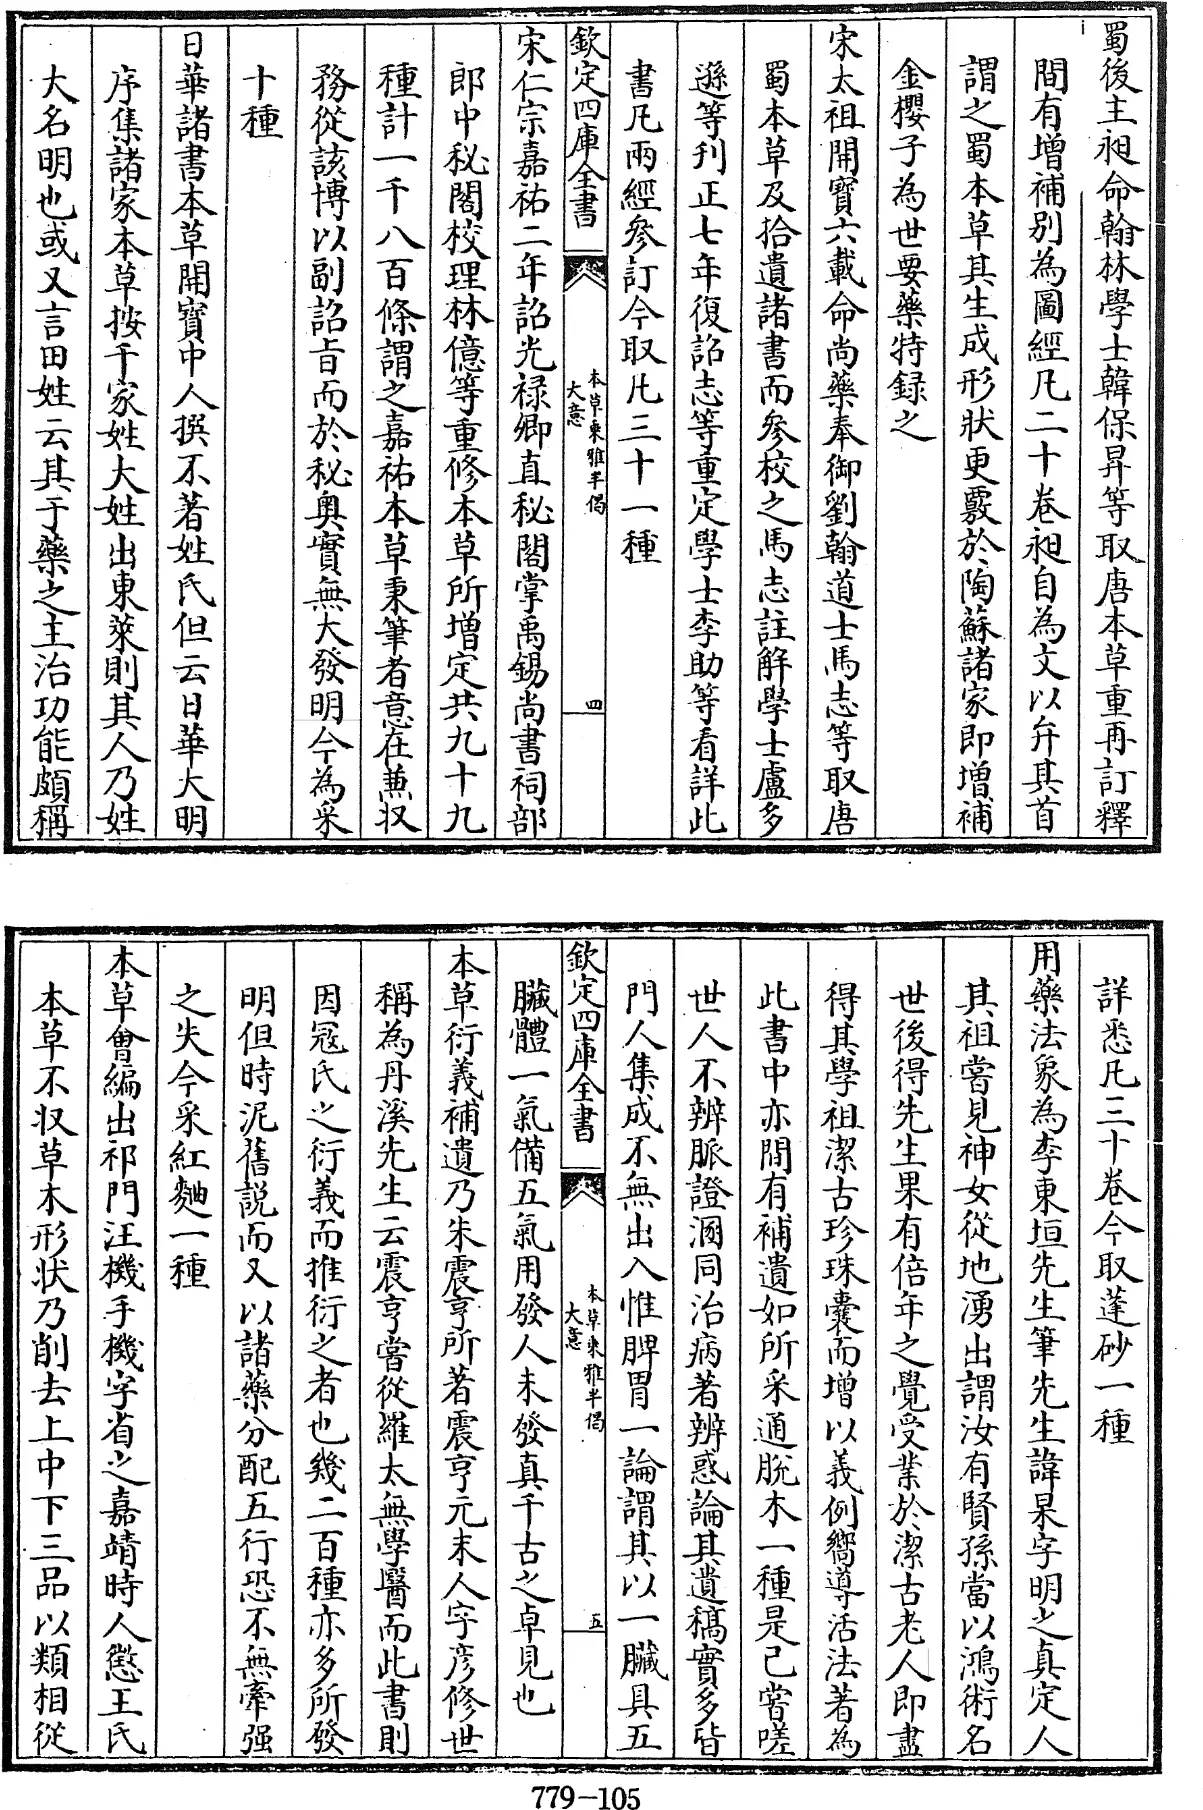 蜀後主昶命翰林學士韓保昇等取唐本草重再訂釋
間有增補別為圖經凡二十卷昶自為文以弁其首
謂之蜀本草其生成形狀更覈於陶蘇諸家即增補
金櫻子為世要藥特録之
宋太祖開寳六載命尚藥奉御劉翰道士馬志等取唐
蜀本草及拾遺諸書而叅校之馬志註解學士盧多
遜等刋正七年復詔志等重定學士李助等看詳此
書凡兩經叅訂今取凡三十一種
欽定四庫全書
本草乗雅半偈
大意
四
宋仁宗嘉祐二年詔光禄卿直秘閣掌禹錫尚書祠部
郎中秘閣校理林億等重修本草所增定共九十九
種計一千八百條謂之嘉祐本草秉筆者意在兼収
務從該博以副詔旨而於秘奥實無大發明今為采
十種
日華諸書本草開寳中人撰不著姓氏但云日華大明
序集諸家本草按千家姓大姓出東萊則其人乃姓
大名明也或又言田姓云其于藥之主治功能頗稱
詳悉凡三十卷今取蓬砂一種
用藥法象為李東垣先生筆先生諱杲字明之真定人
其祖嘗見神女從地湧出謂汝有賢孫當以鴻術名
世後得先生果有倍年之覺受業於潔古老人即盡
得其學祖潔古珍珠囊而增以義例嚮導活法著為
此書中亦間有補遺如所采通脱木一種是已嘗嗟
世人不辨脈證溷同治病著辨惑論其遺稿實多皆
門人集成不無出入惟脾胃一論謂其以一臟具五
欽定四庫全書
本草乗雅半偈
大意
五
臟體一氣備五氣用發人未發真千古之卓見也
本草衍義補遺乃朱震亨所著震亨元末人字彦修世
稱為丹溪先生云震亨嘗從羅太無學醫而此書則
因冦氏之衍義而推衍之者也幾二百種亦多所發
明但時泥舊説而又以諸藥分配五行恐不無牽强
之失今采紅麯一種
本草會編出祁門汪機手機字省之嘉靖時人懲王氏
本草不収草木形狀乃削去上中下三品以類相從
779-105